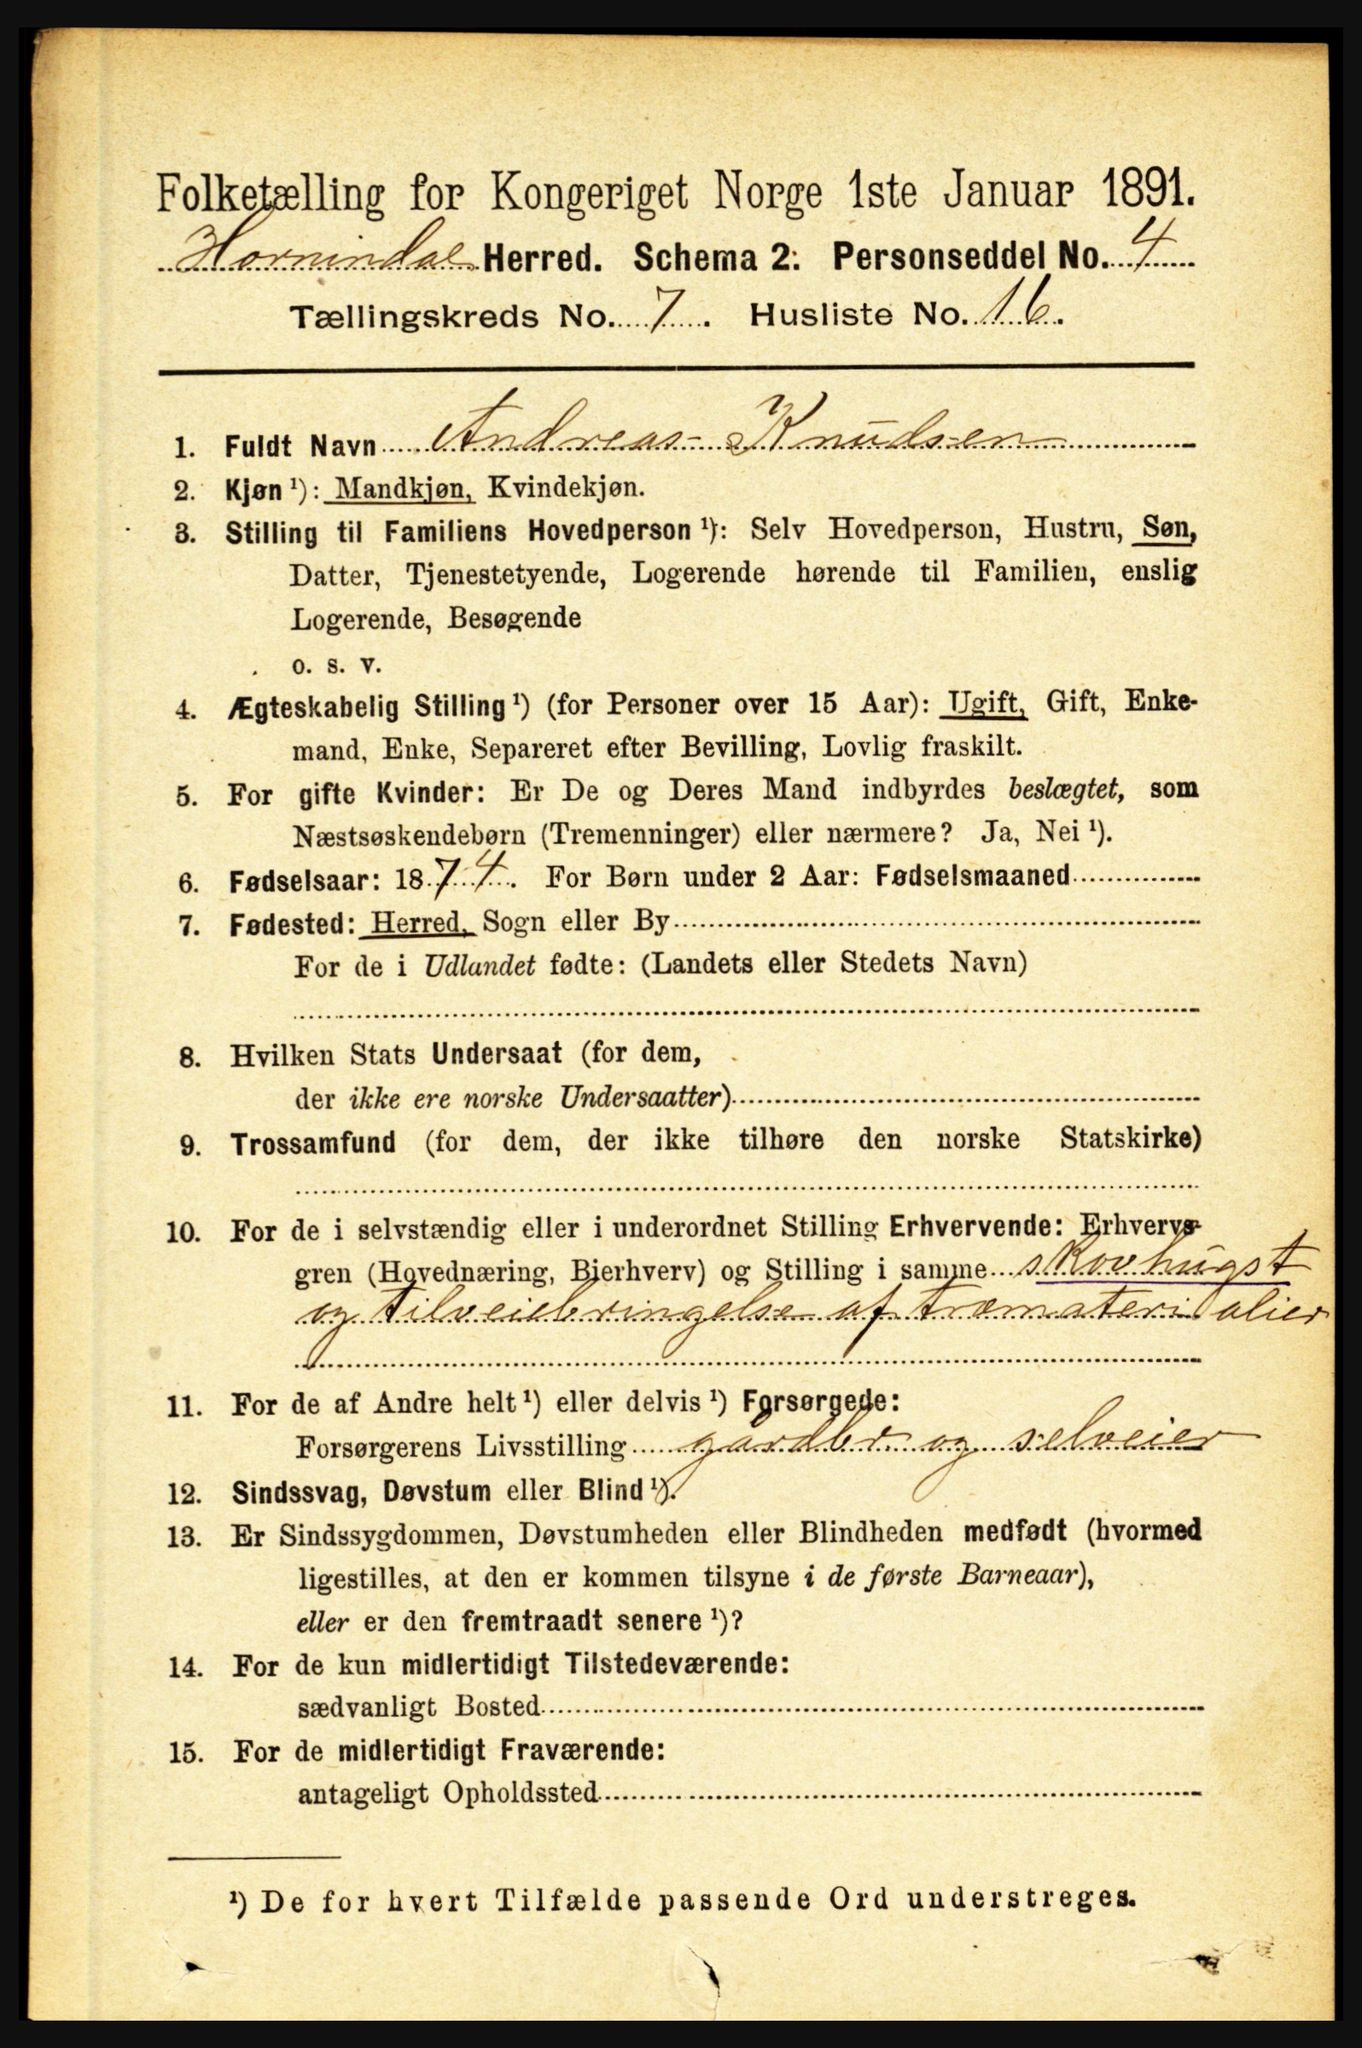 Folketælling for Kongeriget Norge 1ste Januar 1891.
Hornindal Herred. Schema 2: Personseddel No. 4
Tællingskreds No. 7. Husliste No. 16.
1. Fuldt Navn Andreas Knudsen
2. Kjøn ¹): Mandkjøn, Kvindekjøn.
3. Stilling til Familiens Hovedperson ¹): Selv Hovedperson, Hustru, Søn,
Datter, Tjenestetyende, Logerende hørende til Familien, enslig
Logerende, Besøgende
o. s. v.
4. Ægteskabelig Stilling ¹) (for Personer over 15 Aar): Ugift, Gift, Enke-
mand, Enke, Separeret efter Bevilling, Lovlig fraskilt.
5. For gifte Kvinder: Er De og Deres Mand indbyrdes beslægtet, som
Næstsøskendebørn (Tremenninger) eller nærmere? Ja, Nei ¹).
6. Fødselsaar: 1874. For Børn under 2 Aar: Fødselsmaaned
7. Fødested: Herred, Sogn eller By
For de i Udlandet fødte: (Landets eller Stedets Navn)
8. Hvilken Stats Undersaat (for dem,
der ikke ere norske Undersaatter)
9. Trossamfund (for dem, der ikke tilhøre den norske Statskirke)
10. For de i selvstændig eller i underordnet Stilling Erhvervende: Erhvervs-
gren (Hovednæring, Bierhverv) og Stilling i samme skovhugst
og tilveiebringelse af træmaterialier
11. For de af Andre helt ¹) eller delvis ¹) Forsørgede:
Forsørgerens Livsstilling gårdbr og selveier
12. Sindssvag, Døvstum eller Blind ¹).
13. Er Sindssygdommen, Døvstumheden eller Blindheden medfødt (hvormed
ligestilles, at den er kommen tilsyne i de første Barneaar),
eller er den fremtraadt senere ¹)?
14. For de kun midlertidigt Tilstedeværende:
sædvanligt Bosted
15. For de midlertidigt Fraværende:
antageligt Opholdssted
¹) De for hvert Tilfælde passende Ord understreges.